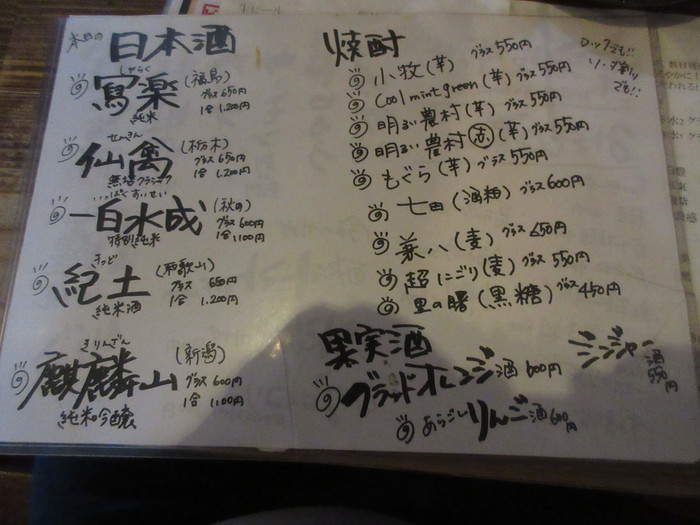 本日の 日本酒
しゃらく
寫楽 (福島)
グラス 650円
純米 1合 1,200円
せんきん
仙禽 (栃木)
グラス 650円
無垢クラシック 1合 1,200円
いっぱくすいせい
一白水成 (秋田)
グラス 600円
特別純米 1合 1100円
きっど
紀土 (和歌山)
グラス 650円
純米酒 1合 1,200円
きりんざん
麒麟山 (新潟)
グラス 600円
1合 1100円
純米吟醸
焼酎
ロックでも!!
ソーダ割り
でも!!
小牧(芋) グラス 550円
Cool mint green(芋) グラス 550円
明るい農村(芋) グラス 550円
明るい農村 赤 (芋) グラス 550円
もぐら(芋) グラス 550円
七田(酒粕) グラス 600円
兼八(麦) グラス 650円
超にごり(麦) グラス 550円
里の曙(黒糖) グラス 450円
果実酒
ブラッドオレンジ酒 600円
ジンジャー
酒
550円
あらごしりんご酒 600円